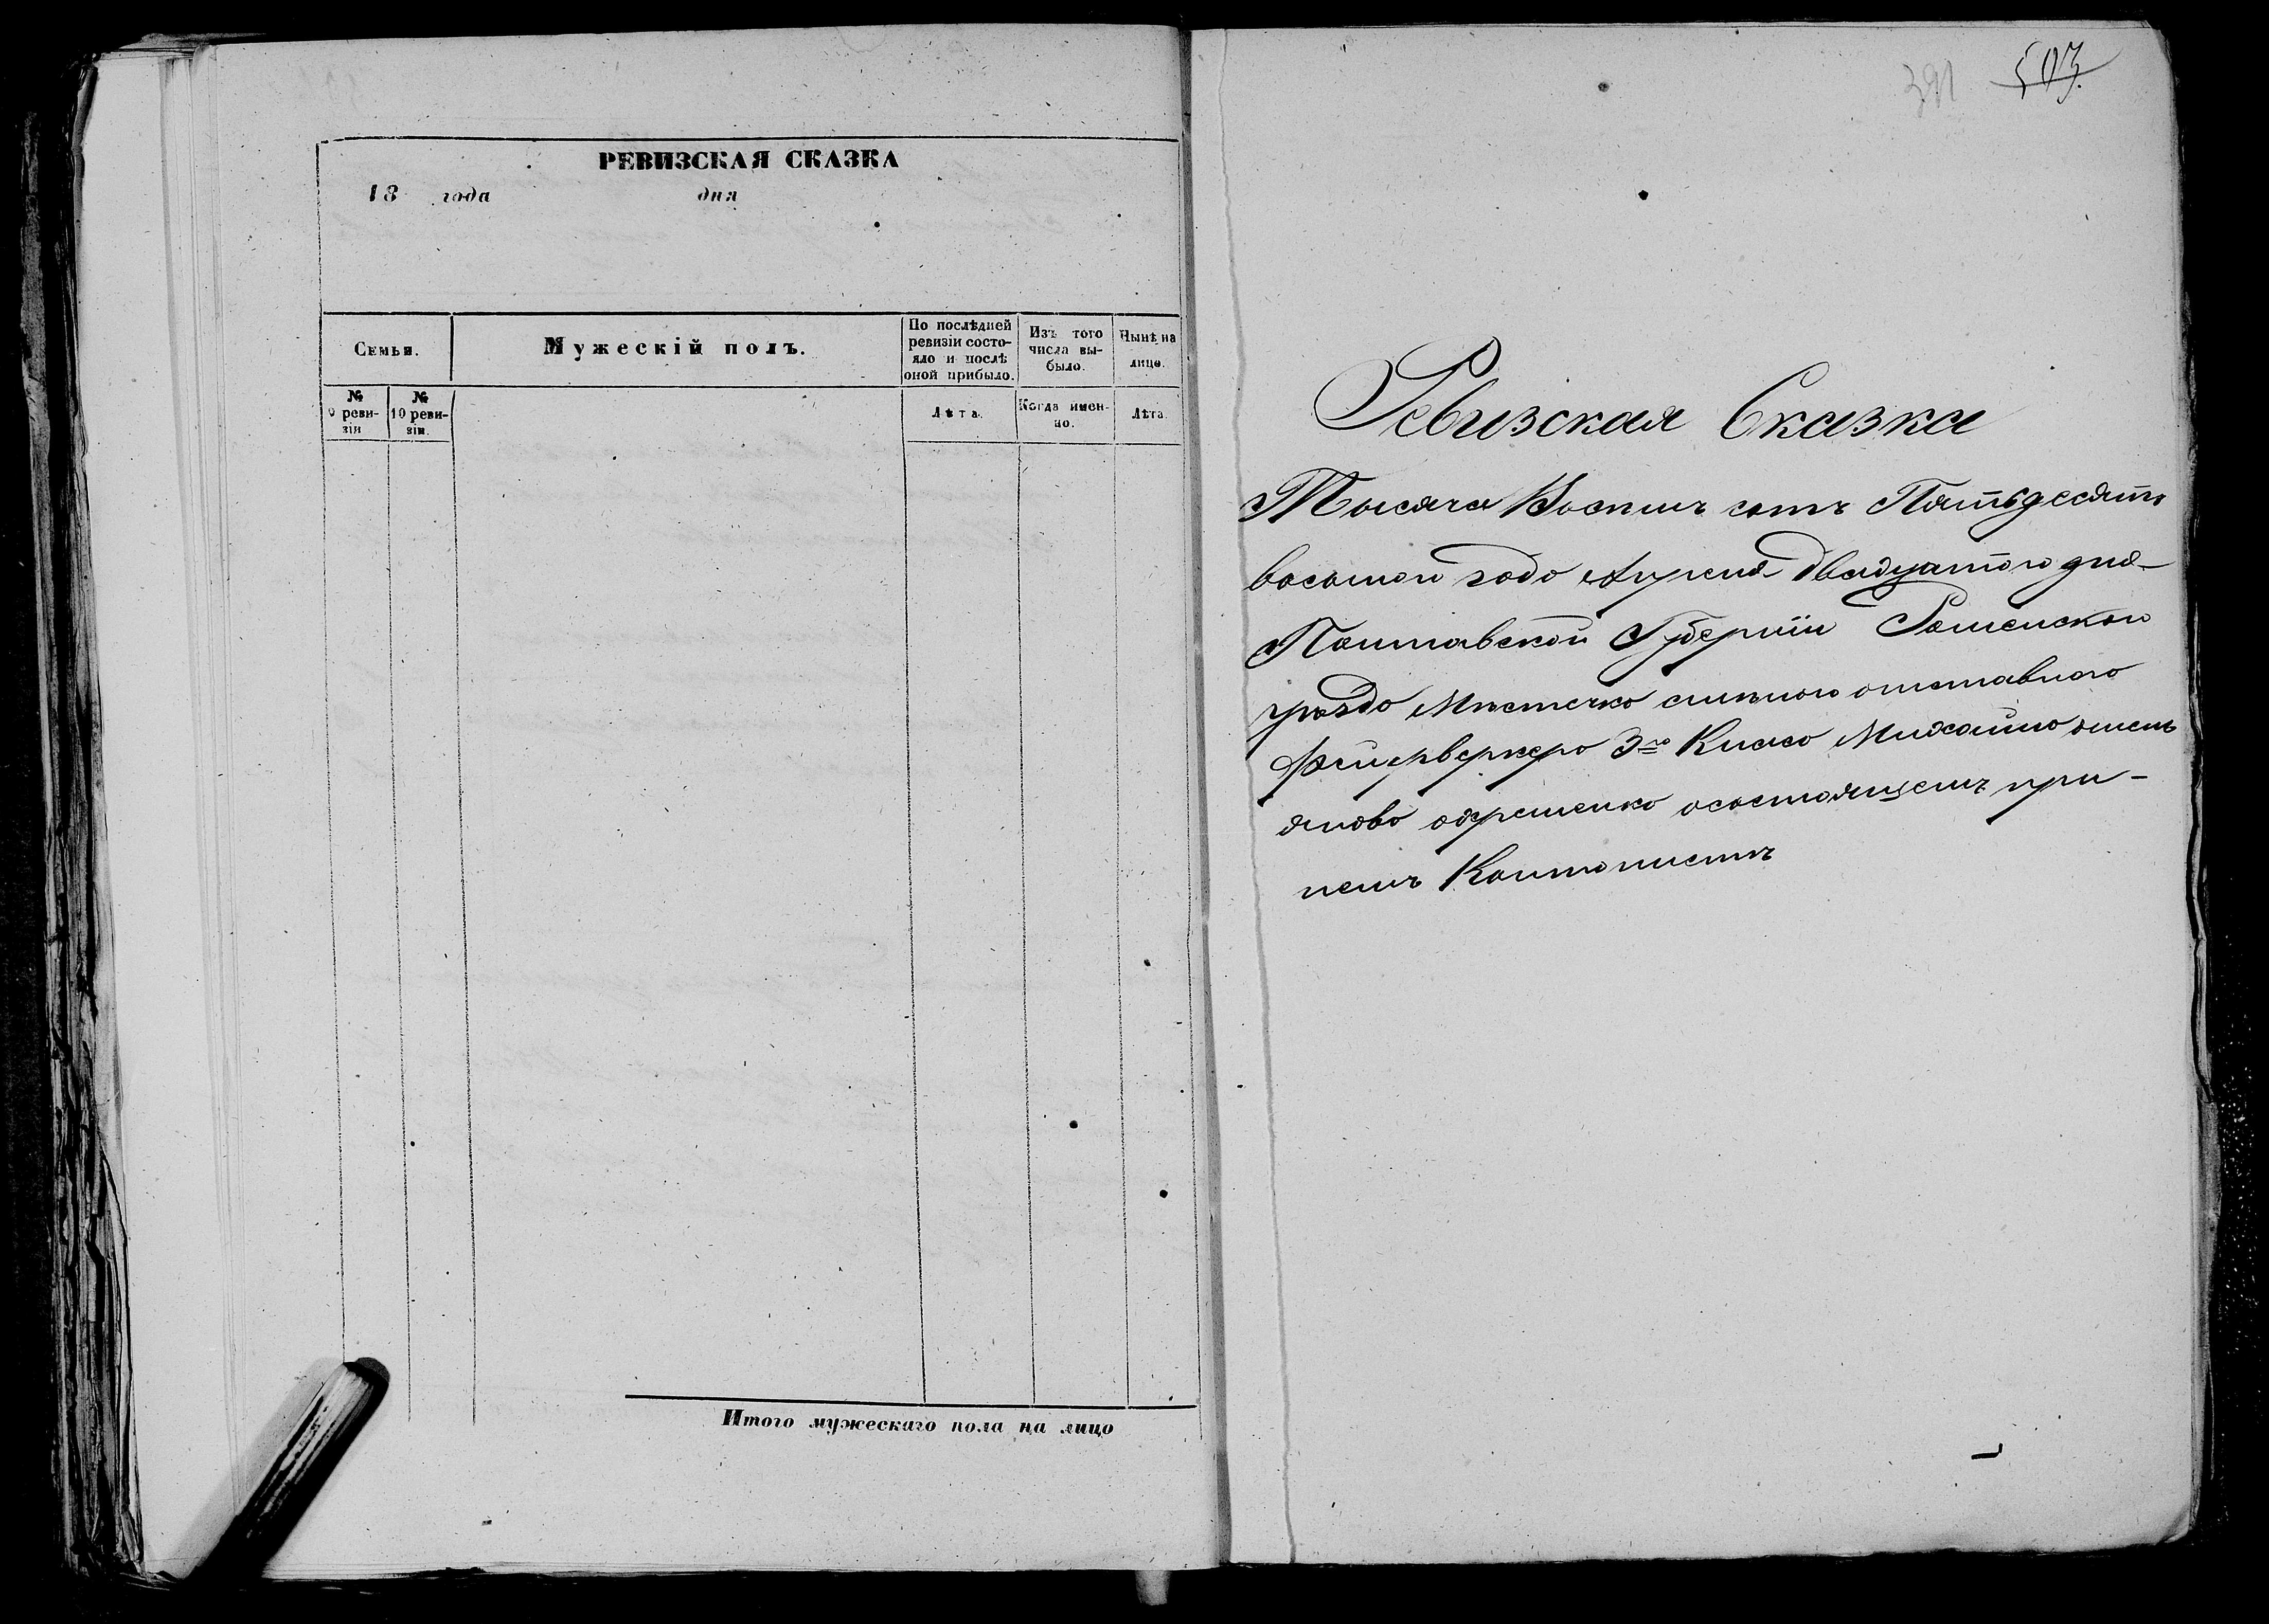 РЕВИЗСКАЯ СКАЗКА
18 года дня
Семьи.
Мужескій полъ.
По послѣдней ревизіи состояло и послѣ оной прибыло.
Изъ того числа выбыло.
Нынѣ на лице.
№ 9 ревизіи
№ 10 ревизіи.
Лѣта.
Когда именно.
Лѣта.
Итого мужескаго пола на лицо
503
Ревизская Сказка
Тысяча Восемь сотъ Пятьдесятъ
восомой годо Апреля двадцатого дня
Полтавской Губерніи Роменской
уѣздо Мѣстечко отставного
фейерверкеро 3го Класо Михайло
осостоящемъ при
немъ Контонистъ